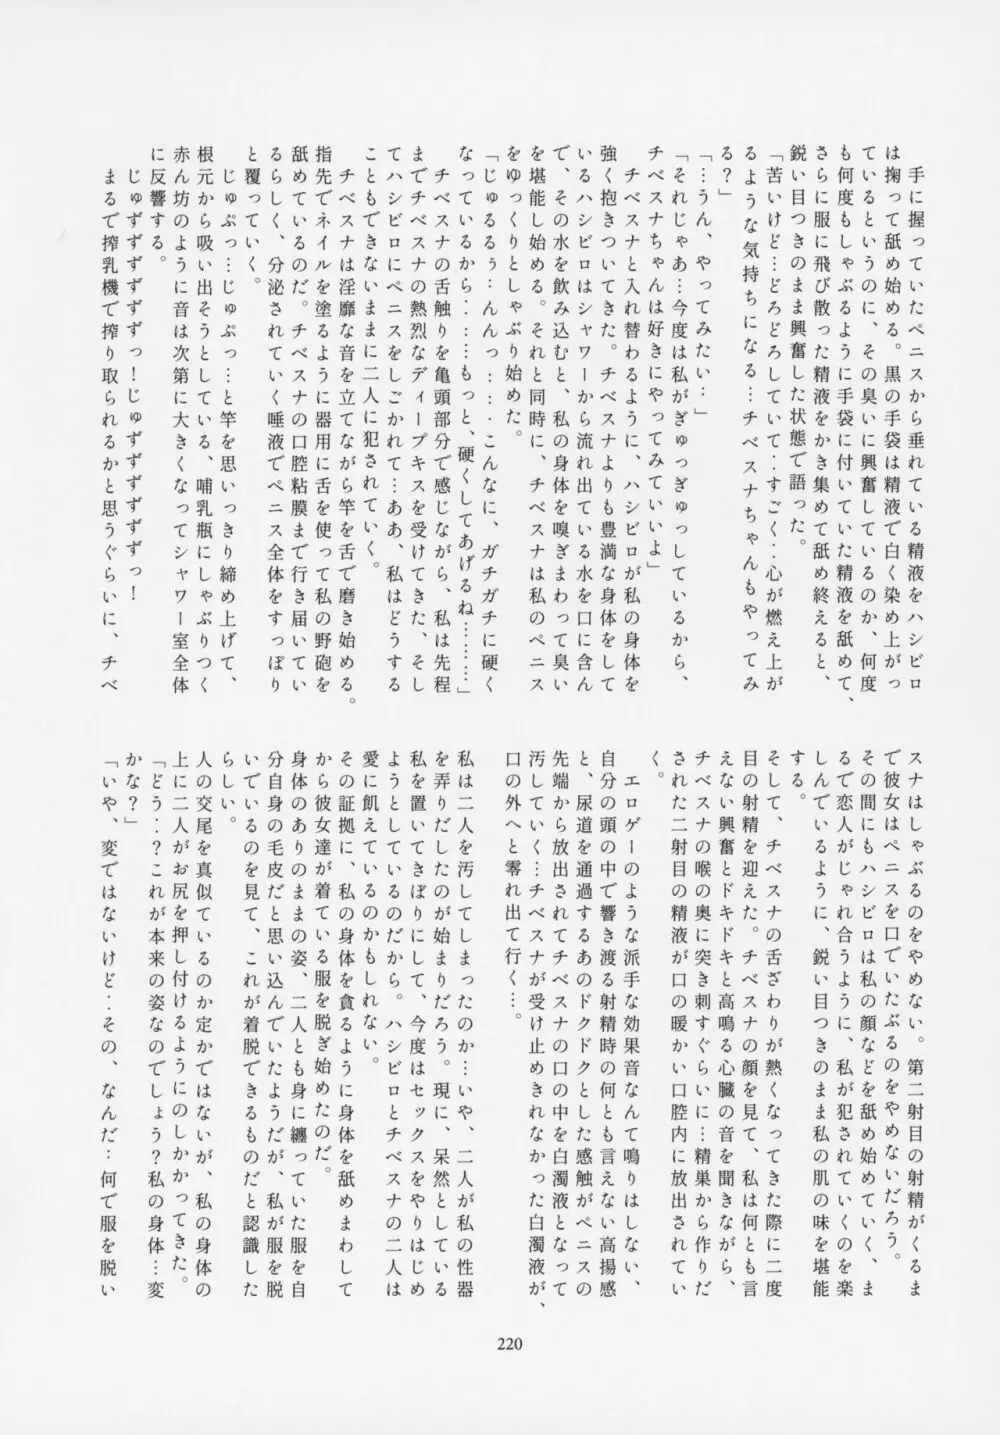 手に握っていたペニスから垂れている精液をハシビロ
は掬って舐め始める。黒の手袋は精液で白く染め上がっ
ているというのに、その臭いに興奮しているのか、何度
も何度もしゃぶるように手袋に付いていた精液を舐めて、
さらに服に飛び散った精液をかき集めて舐め終えると、
鋭い目つきのまま興奮した状態で語った。
「苦いけど…どろどろしていて‥すごく‥心が燃え上が
るような気持ちになる…チベスナちゃんもやってみ
る?」
「…うん、やってみたい…」
「それじゃあ…今度は私がぎゅっぎゅっしているから、
チベスナちゃんは好きにやってみていいよ」
チベスナと入れ替わるように、ハシビロが私の身体を
強く抱きついてきた。チベスナよりも豊満な身体をして
いるハシビロはシャワーから流れ出ている水を口に含ん
で、その水を飲み込むと、私の身体を嗅ぎまわって臭い
を堪能し始める。それと同時に、チベスナは私のペニス
をゆっくりとしゃぶり始めた。
「じゅるるぅ…んんっ……こんなに、ガチガチに硬く
なっているから……もっと、硬くしてあげるね………」
チベスナの舌触りを亀頭部分で感じながら、私は先程
までチベスナの熱烈なディープキスを受けてきた、そし
てハシビロにペニスをしごかれて…ああ、私はどうする
こともできないままに二人に犯されていく。
チベスナは淫靡な音を立てながら竿を舌で磨き始める。
指先でネイルを塗るように器用に舌を使って私の野砲を
舐めているのだ。チベスナの口腔粘膜まで行き届いてい
るらしく、分泌されていく唾液でペニス全体をすっぽり
と覆っていく。
じゅぷっ…じゅぷっ…と竿を思いっきり締め上げて、
根元から吸い出そうとしている、哺乳瓶にしゃぶりつく
赤ん坊のように音は次第に大きくなってシャワー室全体
に反響する。
じゅずずずずずずっ!じゅずずずずずずっ!
まるで搾乳機で搾り取られるかと思うぐらいに、チベ
スナはしゃぶるのをやめない。第二射目の射精がくるま
で彼女はペニスを口でいたぶるのをやめないだろう。
その間にもハシビロは私の顔などを舐め始めていく、ま
るで恋人がじゃれ合うように、私が犯されていくのを楽
しんでいるように、鋭い目つきのまま私の肌の味を堪能
する。
そして、チベスナの舌ざわりが熱くなってきた際に二度
目の射精を迎えた。チベスナの顔を見て、私は何とも言
えない興奮とドキドキと高鳴る心臓の音を聞きながら、
チベスナの喉の奥に突き刺すぐらいに…精巣から作りだ
された二射目の精液が口の暖かい口腔内に放出されてい
く。
エロゲーのような派手な効果音なんて鳴りはしない、
自分の頭の中で響き渡る射精時の何とも言えない高揚感
と、尿道を通過するあのドクドクとした感触がペニスの
先端から放出されてチベスナの口の中を白濁液となって
汚していく…チベスナが受け止めきれなかった白濁液が、
口の外へと零れ出て行く…。
私は二人を汚してしまったのか…いや、二人が私の性器
を弄りだしたのが始まりだろう。現に、呆然としている
私を置いてきぼりにして、今度はセックスをやりはじめ
ようとしているのだから。ハシビロとチベスナの二人は
愛に飢えているのかもしれない。
その証拠に、私の身体を貪るように身体を舐めまわして
から彼女達が着ている服を脱ぎ始めたのだ。
身体のありのままの姿、二人とも身に纏っていた服を自
分自身の毛皮だと思い込んでいたようだが、私が服を脱
いでいるのを見て、これが着脱できるものだと認識した
らしい。
人の交尾を真似ているのか定かではないが、私の身体の
上に二人がお尻を押し付けるようにのしかかってきた。
「どう‥?これが本来の姿なのでしょう?私の身体…変
かな?」
「いや、変ではないけど‥その、なんだ‥何で服を脱い
220